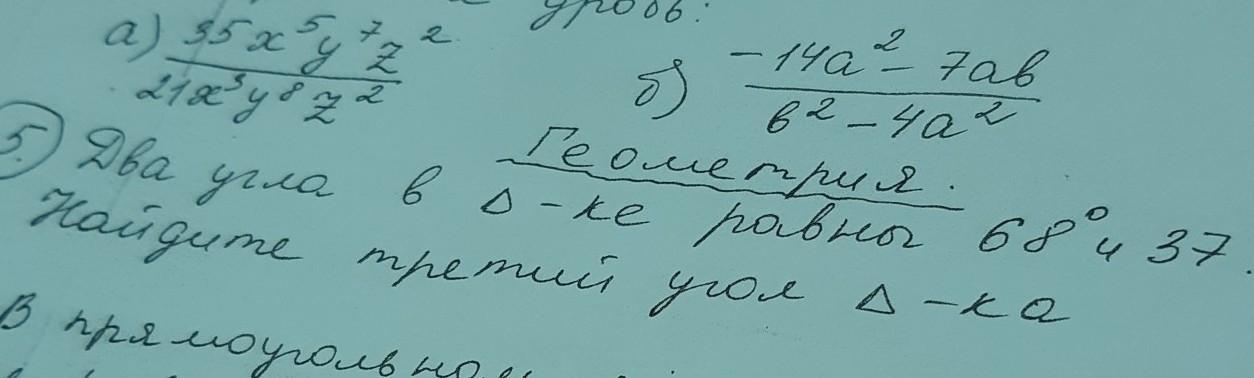 дробь:
а) 35x⁵y⁷z² / 21x³y⁸z²
б) −14a² − 7ab / b² − 4a²
Геометрия.
5. Два угла в Δ-ке равны 68° и 37.
Найдите третий угол Δ-ка
В прямоугольном